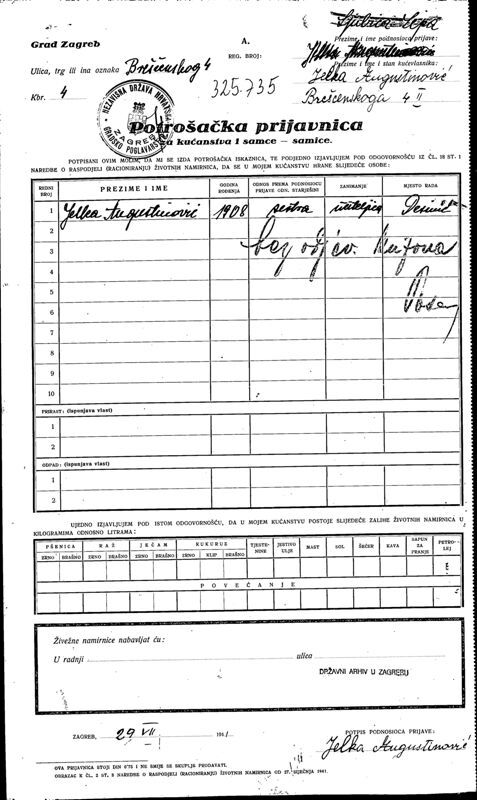 Grad Zagreb
A.
REG. BROJ:
Prezime i ime podnosioca prijave:
Ulica, trg ili ina oznaka Brešćenskog 4
325.735
Prezime i ime i stan kućevlasnika:
Jelka Augustinović
Kbr. 4
Brešćenskoga 4 II
NEZAVISNA DRŽAVA HRVATSKA
GRADSKO POGLAVARSTVO
ZAGREB
Potrošačka prijavnica
za kućanstva i samce — samice.
POTPISANI OVIM MOLIM, DA MI SE IZDA POTROŠAČKA ISKAZNICA, TE PODJEDNO IZJAVLJUJEM POD ODGOVORNOŠĆU IZ ČL. 18 ST. 1
NAREDBE O RASPODJELI (RACIONIRANJU) ŽIVOTNIH NAMIRNICA, DA SE U MOJEM KUĆANSTVU HRANE SLIJEDEĆE OSOBE:
REDNI BROJ PREZIME I IME GODINA ROĐENJA ODNOS PREMA PODNOSIOCU PRIJAVE ODN. STARJEŠINI ZANIMANJE MJESTO RADA
1 Jelka Augustinović 1908 sestra učiteljica
2
3 bez
4
5
6
7
8
9
10
PRIRAST: (ispunjava vlast)
1
2
OTPAD: (ispunjava vlast)
1
2
UJEDNO IZJAVLJUJEM POD ISTOM ODGOVORNOŠĆU, DA U MOJEM KUĆANSTVU POSTOJE SLIJEDEĆE ZALIHE ŽIVOTNIH NAMIRNICA U
KILOGRAMIMA ODNOSNO LITRAMA:
PŠENICA RAŽ JEČAM KUKURUZ TJESTENINE JESTIVO ULJE MAST SOL ŠEĆER KAVA SAPUN ZA PRANJE PETROLEJ
ZRNO BRAŠNO ZRNO BRAŠNO ZRNO BRAŠNO ZRNO KLIP BRAŠNO
POVEĆANJE
Živežne namirnice nabavljat ću:
U radnji ulica
DRŽAVNI ARHIV U ZAGREBU
ZAGREB, 29 VII 1941
POTPIS PODNOSIOCA PRIJAVE:
Jelka Augustinović
OVA PRIJAVNICA STOJI DIN 0'75 I NE SMIJE SE SKUPLJE PRODAVATI.
OBRAZAC K ČL. 2 ST. 5 NAREDBE O RASPODJELI (RACIONIRANJU) ŽIVOTNIH NAMIRNICA OD 27. SIJEČNJA 1941.